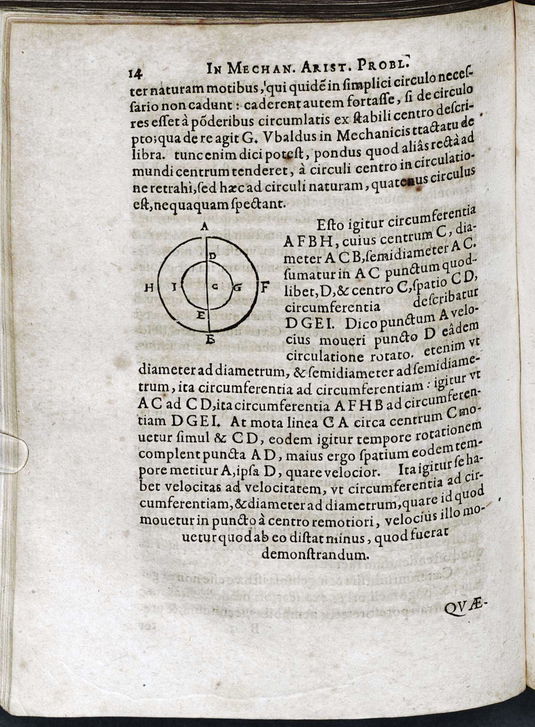 14 IN MECHAN. ARIST. PROBL.
ter naturam motibus, qui quidẽ in ſimplici circulo neceſ-
ſario non cadunt: caderent autem fortaſſe, ſi de circulo
res eſſet à põderibus circumlatis ex ſtabili centro deſcri-
pto; qua de re agit G. Vbaldus in Mechanicis ttactatu de
libra. tunc enim dici poteſt, pondus quod aliâs rectà ad
mundi centrum tenderet, à circuli centro in circulatio-
ne retrahi, ſed hæc ad circuli naturam, quatenus circulus
eſt, nequaquam ſpectant.
Eſto igitur circumferentia
A F B H, cuius centrum C, dia-
meter A C B, ſemidiameter A C.
ſumatur in A C punctum quod-
libet, D, & centro C, ſpatio C D,
circumferentia deſcribatur
D G E I. Dico punctum A velo-
cius moueri puncto D eâdem
circulatione rotato. etenim vt
A
D
H I C G F
E
B
diameter ad diametrum, & ſemidiameter ad ſemidiame-
trum, ita circumferentia ad circumferentiam: igitur vt
A C ad C D, ita circumferentia A F H B ad circumferen-
tiam D G E I. At mota linea C A circa centrum C mo-
uetur ſimul & C D, eodem igitur tempore rotationem
complent puncta A D, maius ergo ſpatium eodem tem-
pore metitur A, ipſa D, quare velocior. Ita igitur ſe ha-
bet velocitas ad velocitatem, vt circumferentia ad cir-
cumferentiam, & diameter ad diametrum, quare id quod
mouetur in puncto à centro remotiori, velociùs illo mo-
uetur quod ab eo diſtat minus, quod fuerat
demonſtrandum.
QVÆ-